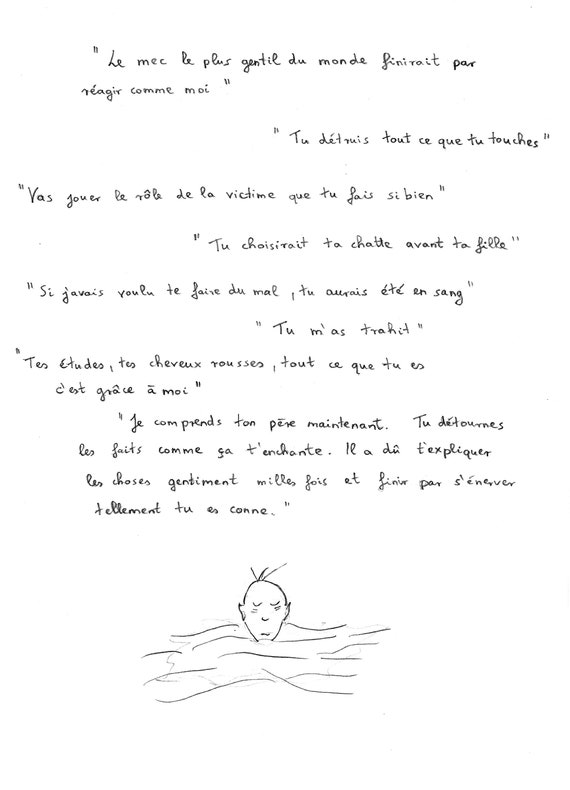 " Le mec le plus gentil du monde finirait par
réagir comme moi "
" Tu détruis tout ce que tu touches "
" Vas jouer le rôle de la victime que tu fais si bien "
" Tu choisirait ta chatte avant ta fille "
" Si j'avais voulu te faire du mal , tu aurais été en sang "
" Tu m'as trahit "
" Tes études , tes cheveux rousses , tout ce que tu es
c'est grâce à moi "
" Je comprends ton père maintenant. Tu détournes
les faits comme ça t'enchante. Il a dû t'expliquer
les choses gentiment milles fois et finir par s'énerver
tellement tu es conne. "